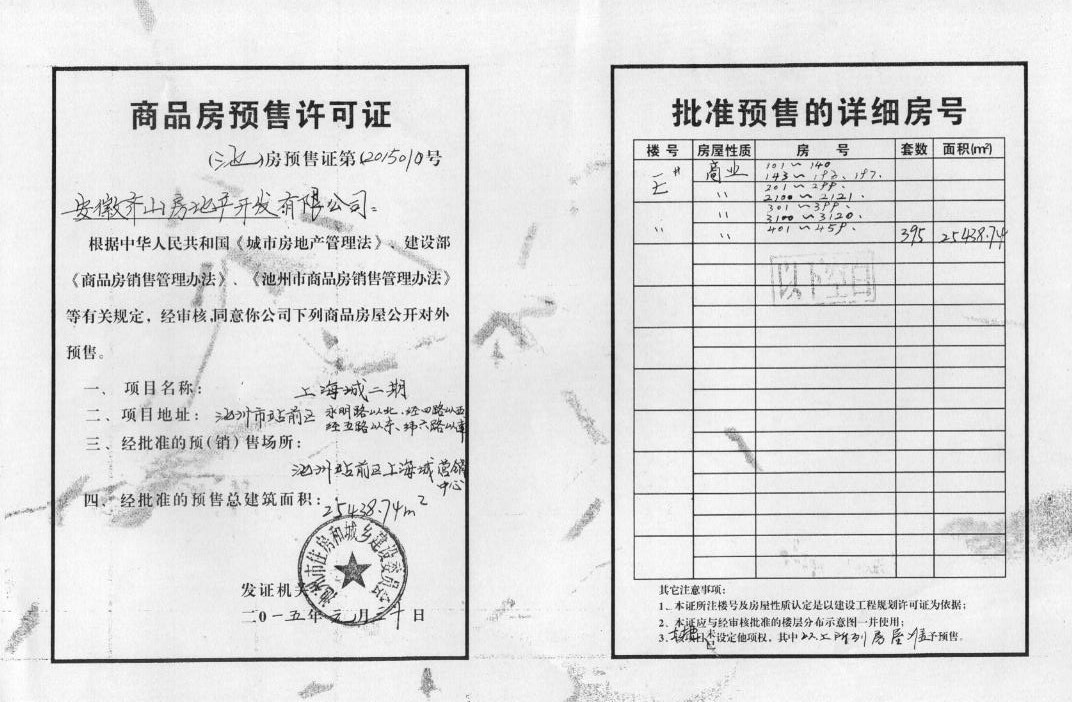 商品房预售许可证
(池)房预售证第(2015010号
安徽齐山房地产开发有限公司：
根据中华人民共和国《城市房地产管理法》、建设部
《商品房销售管理办法》、《池州市商品房销售管理办法》
等有关规定，经审核,同意你公司下列商品房屋公开对外
预售。
一、 项目名称： 上海城二期
二、项目地址： 池州市站前区 永明路以北、经四路以西
经五路以东、纬六路以南
三、经批准的预(销)售场所：
池州站前区上海城营销
中心
四、经批准的预售总建筑面积：
25438.74m²
池州市住房和城乡建设委员会
发证机关
二0一五年元月二十日
批准预售的详细房号
楼号 房屋性质 房号 套数 面积(m²)
商业 101~140
143~193、197、
〃 201~299、
2100~2121、
〃 301~399、
3100~3120、
〃 〃 401~459、 395 25438.74
以下空白
其它注意事项：
1、本证所注楼号及房屋性质认定是以建设工程规划许可证为依据；
2、本证应与经审核批准的楼层分布示意图一并使用；
3、该项目 设定他项权，其中以上所列房屋准予预售。